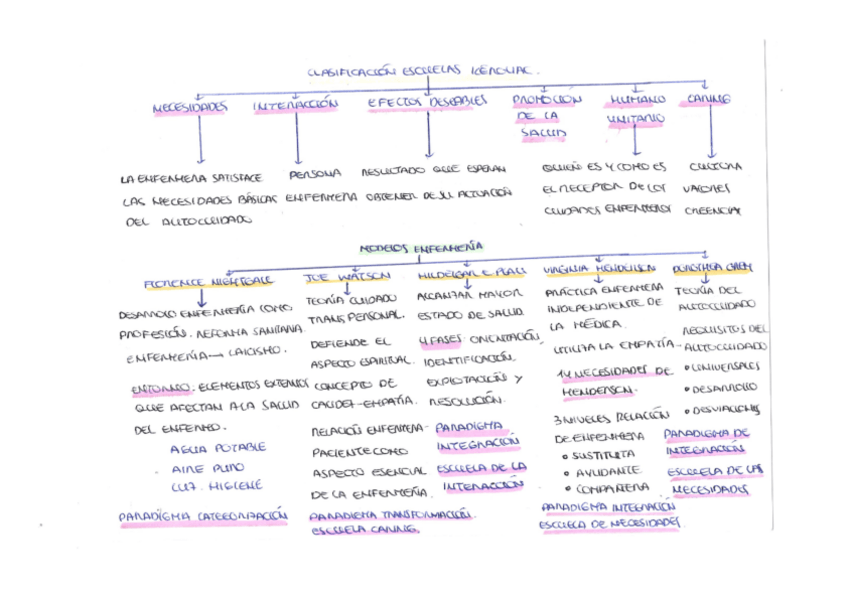 CLASIFICACIÓN ESCUELAS KEROUAC.
NECESIDADES
INTERACCIÓN
EFECTOS DESEABLES
PROMOCIÓN
DE LA
SALUD
HUMANO
UNITARIO
CARING
LA ENFERMERA SATISFACE
LAS NECESIDADES BÁSICAS
DEL AUTOCUIDADO
PERSONA
ENFERMERA
RESULTADO QUE ESPERAN
OBTENER DE SU ACTUACIÓN
QUIÉN ES Y COMO ES
EL RECEPTOR DE LOS
CUIDADOS ENFERMEROS
CULTURA
VALORES
CREENCIAS
MODELOS ENFERMERÍA
FLORENCE NIGHTGALE
DESARROLLO ENFERMERÍA COMO
PROFESIÓN. REFORMA SANITARIA.
ENFERMERÍA → LAICISMO.
ENTORNO: ELEMENTOS EXTERNOS
QUE AFECTAN A LA SALUD
DEL ENFERMO.
AGUA POTABLE
AIRE PURO
LUZ. HIGIENE
PARADIGMA CATEGORIZACIÓN
JOE WATSON
TEORÍA CUIDADO
TRANSPERSONAL.
DEFIENDE EL
ASPECTO ESPIRITUAL.
CONCEPTO DE
CALIDEZ-EMPATÍA.
RELACIÓN ENFERMERA-
PACIENTE COMO
ASPECTO ESENCIAL
DE LA ENFERMERÍA.
PARADIGMA TRANSFORMACIÓN.
ESCUELA CARING.
HILDEGAR E PLAU
ALCANZAR MAYOR
ESTADO DE SALUD.
4 FASES: ORIENTACIÓN,
IDENTIFICACIÓN,
EXPLOTACIÓN Y
RESOLUCIÓN.
PARADIGMA
INTEGRACIÓN
ESCUELA DE LA
INTERACCIÓN
VIRGINIA HENDERSON
PRÁCTICA ENFERMERA
INDEPENDIENTE DE
LA MÉDICA.
UTILIZA LA EMPATÍA
14 NECESIDADES DE
HENDERSON.
3 NIVELES RELACIÓN
DE ENFERMERA
• SUSTITUTA
• AYUDANTE
• COMPAÑERA
PARADIGMA INTEGRACIÓN
ESCUELA DE NECESIDADES.
DOROTHEA OREM
TEORÍA DEL
AUTOCUIDADO
REQUISITOS DEL
AUTOCUIDADO
• UNIVERSALES
• DESARROLLO
• DESVIACIONES
PARADIGMA DE
INTEGRACIÓN
ESCUELA DE LAS
NECESIDADES